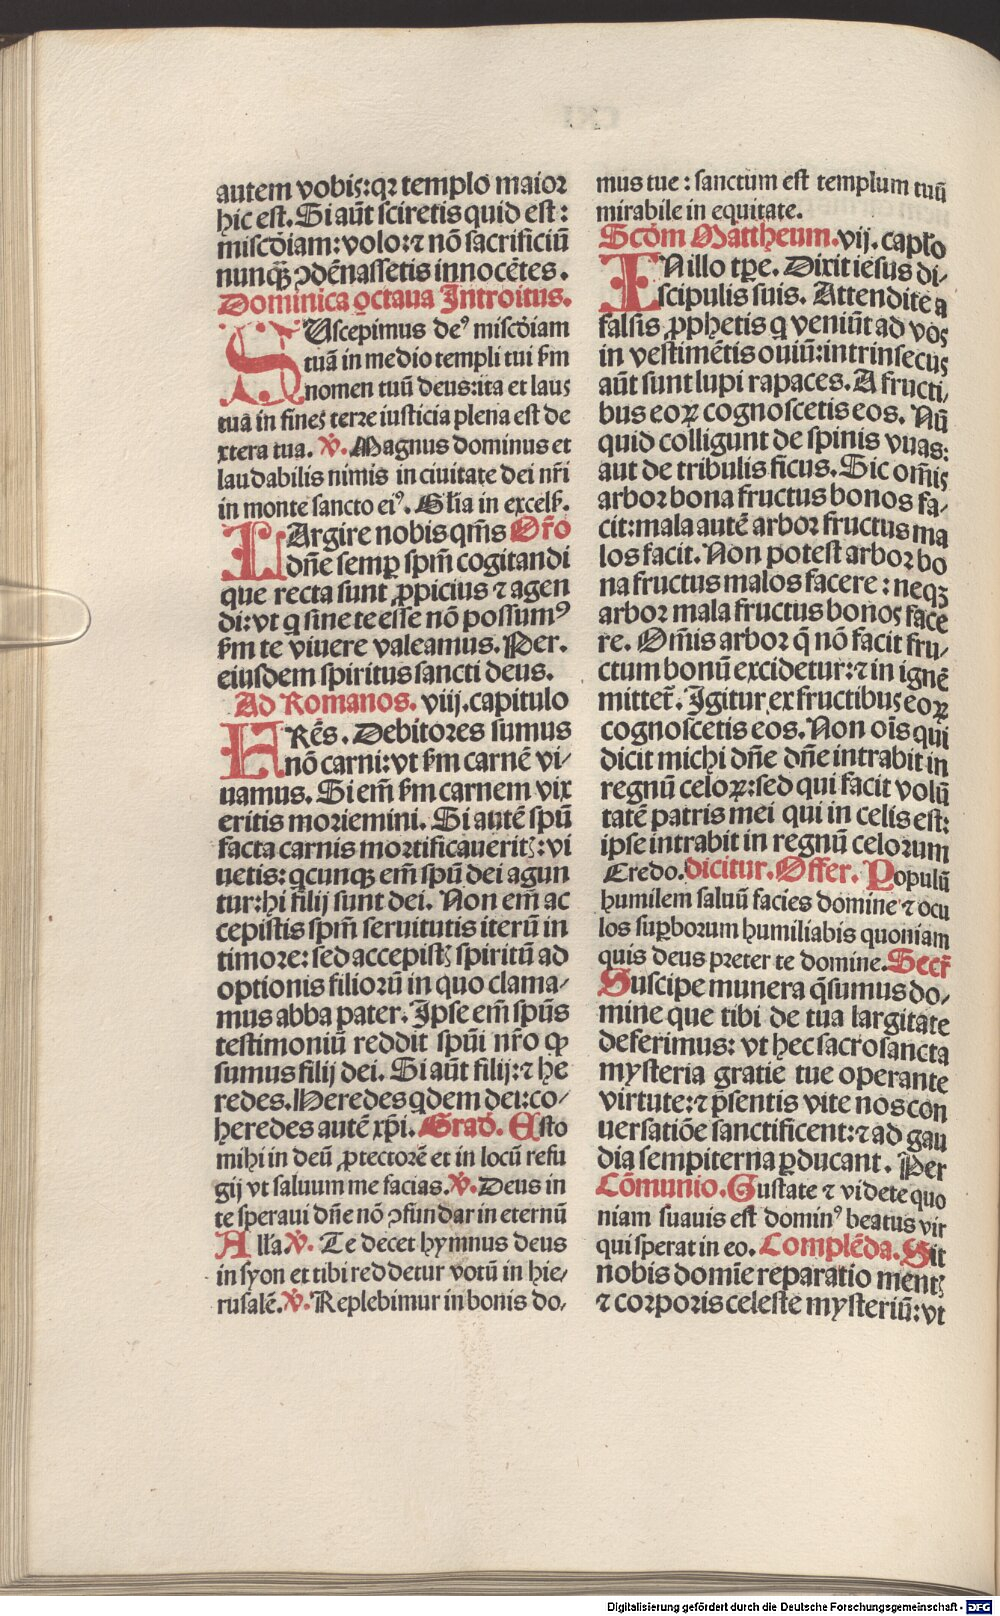 autem vobis:qꝛ templo maior
hic est. Si aūt sciretis quid est:
misc̄diam:volo:⁊ nō sacrificiū
nunqȝ ꝯdēnassetis innocētes.
Dominica octaua Introitus.
SUscepimus de⁹ misc̄diam
tuā in medio templi tui ẜm
nomen tuū deus:ita et laus
tua in fines terre iusticia plena est de
xtera tua. ꝟ. Magnus dominus et
laudabilis nimis in ciuitate dei nr̄i
in monte sancto ei⁹. Gl̄ia in excelẜ.
LArgire nobis qm̄s Or̄o
dn̄e semꝑ spm̄ cogitandi
que recta sunt ꝓpicius ⁊ agen
di:vt q sine te esse nō possum⁹
ẜm te viuere valeamus. Per.
eiusdem spiritus sancti deus.
Ad Romanos. viij. capitulo
FRēs. Debitores sumus
nō carni:vt ẜm carnē vi⸗
uamus. Si em̄ ẜm carnem vix
eritis moriemini. Si autē spū
facta carnis mortificaueritꝭ:vi
uetis:qcunqȝ em̄ spū dei agun
tur:hi filij sunt dei. Non em̄ ac
cepistis spm̄ seruitutis iterū in
timore:sed accepistꝭ spiritū ad
optionis filiorū in quo clama⸗
mus abba pater. Ipse em̄ spūs
testimoniū reddit spūi nr̄o ꝙ
sumus filij dei. Si aūt filij:⁊ he
redes. Heredes qdem dei:co⸗
heredes autē xp̄i. Grad̄. Esto
mihi in deū ꝓtectorē et in locū refu
gij vt saluum me facias. ꝟ. Deus in
te speraui dn̄e nō ꝯfundar in eternū
All̄a ꝟ. Te decet hymnus deus
in syon et tibi reddetur votū in hie⸗
rusalē. ꝟ. Replebimur in bonis do⸗
mus tue : sanctum est templum tuū
mirabile in equitate.
Scd̄m Mattheum. vij. capl̄o
IN illo tꝑe. Dixit iesus di⸗
scipulis suis. Attendite a
falsis ꝓphetis q veniūt ad vos
in vestimētis ouiū:intrinsecus
aūt sunt lupi rapaces. A fructi⸗
bus eoꝝ cognoscetis eos. Nū
quid colligunt de spinis vuas:
aut de tribulis ficus. Sic om̄is
arbor bona fructus bonos fa⸗
cit:mala autē arbor fructus ma
los facit. Non potest arbor bo
na fructus malos facere : neqȝ
arbor mala fructus bonos face
re. Om̄is arbor q̄ nō facit fru⸗
ctum bonū excidetur:⁊ in ignē
mittet̄. Igitur ex fructibus eoꝝ
cognoscetis eos. Non oīs qui
dicit michi dn̄e dn̄e intrabit in
regnū celoꝝ:sed qui facit volū
tatē patris mei qui in celis est:
ipse intrabit in regnū celorum
Credo. dicitur. Offer. Populū
humilem saluū facies domine ⁊ ocu
los suꝑborum humiliabis quoniam
quis deus preter te domine. Secr̄
Suscipe munera q̄sumus do⸗
mine que tibi de tua largitate
deferimus: vt hec sacrosancta
mysteria gratie tue operante
virtute:⁊ p̄sentis vite nos con
uersatiōe sanctificent:⁊ ad gau
dia sempiterna ꝑducant. Per
Cōmunio. Gustate ⁊ videte quo
niam suauis est domin⁹ beatus vir
qui sperat in eo. Complēda. Sit
nobis domīe reparatio mentꝭ
⁊ corporis celeste mysteriū:vt
Digitalisierung gefördert durch die Deutsche Forschungsgemeinschaft - DFG